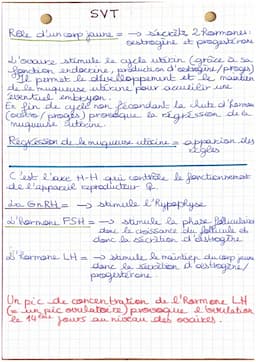 SVT
Rôle d'un corp jaune = → secrète 2 Hormones:
oestrogène et progestérone
L'ovaire stimule le cycle utérin (grâce à sa
fonction endocrine, production d'oestrogène/progest)
Il permet le développement et le maintien
de la muqueuse utérine pour acueillir une
éventuel embryon.
En fin de cycle non fécondant la chute d'hormone
(oestro/proges) provoque la régréssion de la
muqueuse utérine.
Regréssion de la muqueuse utérine = apparition des
règles
C'est l'axe H-H qui contrôle le fonctionnement
de l'appareil reproducteur ♀.
La GnRH = → stimule l'Hypophyse
L'Hormone FSH = → stimule la phase folliculaire
donc la croissance du follicule et
donc la sécrétion d'oestrogène
L'Hormone LH = → stimule le maintien du corp jaune
donc la sécrétion d'oestrogène/
progestérone
Un pic de concentration de l'Hormone LH
(= un pic ovulatoire) provoque l'ovulation
le 14ème jours au niveau des ovaires.